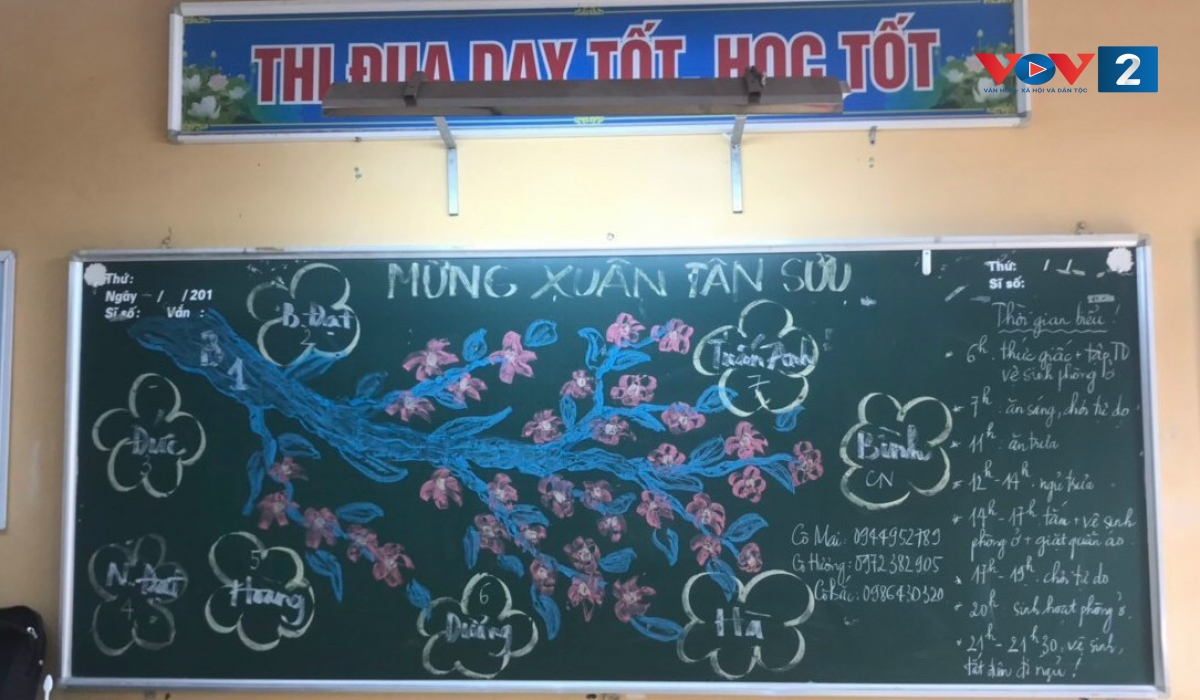 THI ĐUA DẠY TỐT HỌC TỐT
VOV 2
VĂN HÓA - XÃ HỘI VÀ DÂN TỘC
Thứ:
Ngày / /201
Sĩ số: Vắn :
MỪNG XUÂN TÂN SỬU
Thứ: / /
Sĩ số:
B1
B. Đạt
2
Tuấn Anh
7
Đức
3
Bình
CN
N. Đạt
4
5
Hoàng
6
Dương
Hà
Cô Mai: 0944952789
C Hường: 0972382905
0986430320
Thời gian biểu!
6h thức giấc + tập TD
vệ sinh phòng ở
7h: ăn sáng, chơi tự do
11h: ăn trưa
12h - 14h: ngủ trưa
14h - 17h tắm + vệ sinh
phòng ở + giặt quần áo
17h - 19h: chơi tự do
20h sinh hoạt phòng ở
21h - 21h30: vệ sinh,
tắt đèn đi ngủ!